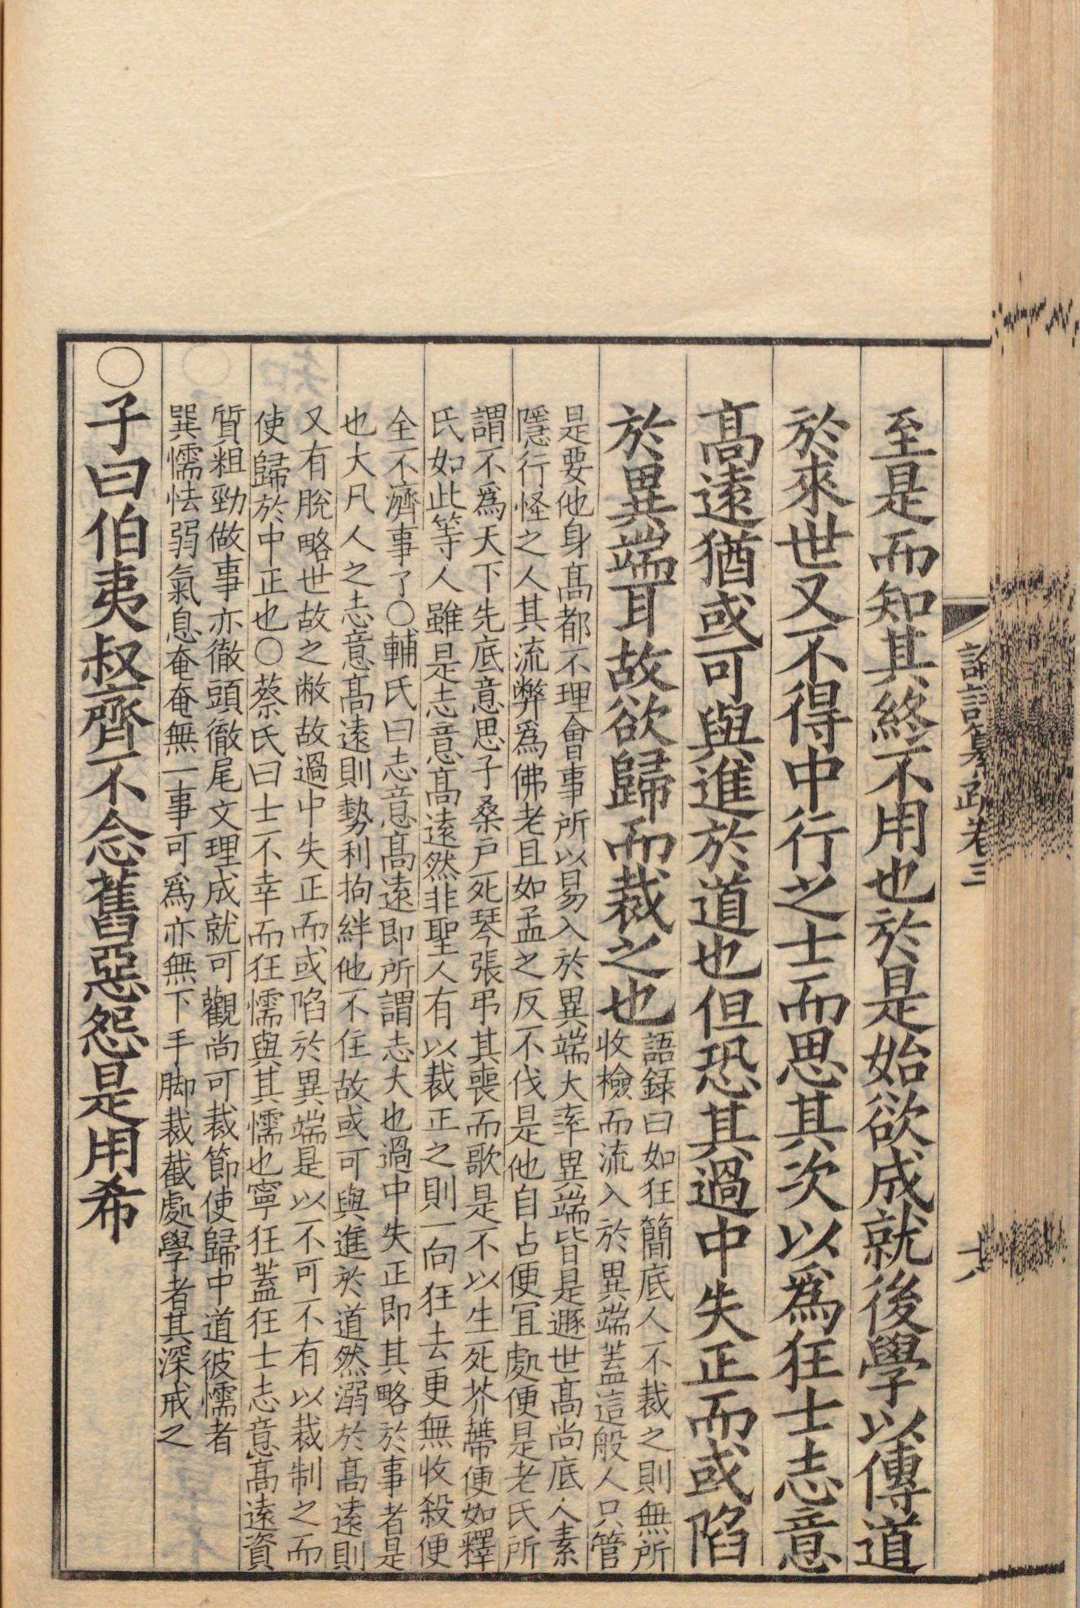 至是而知其終不用也於是始欲成就後學以傳道
於來世又不得中行之士而思其次以爲狂士志意
高遠猶或可與進於道也但恐其過中失正而或陷
於異端耳故欲歸而裁之也
語録曰如狂簡底人不裁之則無所
收檢而流入於異端蓋這般人只管
是要他身高都不理會事所以易入於異端大率異端皆是遯世高尚底人素
隱行怪之人其流弊爲佛老且如孟之反不伐是他自占便冝處便是老氏所
謂不爲天下先底意思子桑戶死琴張弔其喪而歌是不以生死芥蔕便如釋
氏如此等人雖是志意高遠然非聖人有以裁正之則一向狂去更無收殺便
全不濟事了○輔氏曰志意高遠即所謂志大也過中失正即其略於事者是
也大凡人之志意高遠則勢利拘絆他不住故或可與進於道然溺於高遠則
又有脫略世故之敝故過中失正而或陷於異端是以不可不有以裁制之而
使歸於中正也○蔡氏曰士不幸而狂懦與其懦也寧狂蓋狂士志意高遠資
質粗勁做事亦徹頭徹尾文理成就可觀尚可裁節使歸中道彼懦者
巽懦怯弱氣息奄奄無一事可爲亦無下手脚裁截處學者其深戒之
○子曰伯夷叔齊不念舊惡怨是用希
論語纂疏卷三
十八